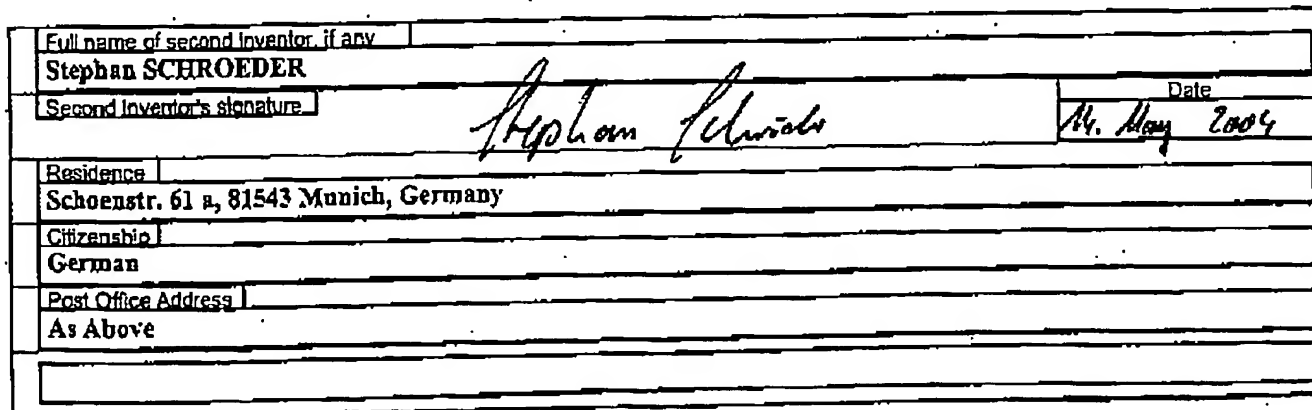 Full name of second inventor, if any
Stephan SCHROEDER
Second Inventor's signature
Stephan Schroeder
Date
May 2004
Residence
Schoenstr. 61 a, 81543 Munich, Germany
Citizenship
German
Post Office Address
As Above